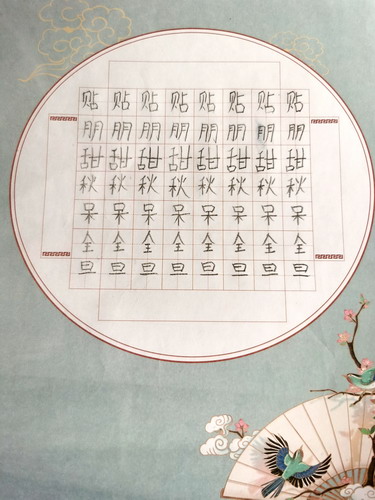 贴贴贴贴贴贴贴贴
朋朋朋朋朋朋朋朋
甜甜甜甜甜甜甜甜
秋秋秋秋秋秋秋秋
呆呆呆呆呆呆呆呆
全全全全全全全全
旦旦旦旦旦旦旦旦